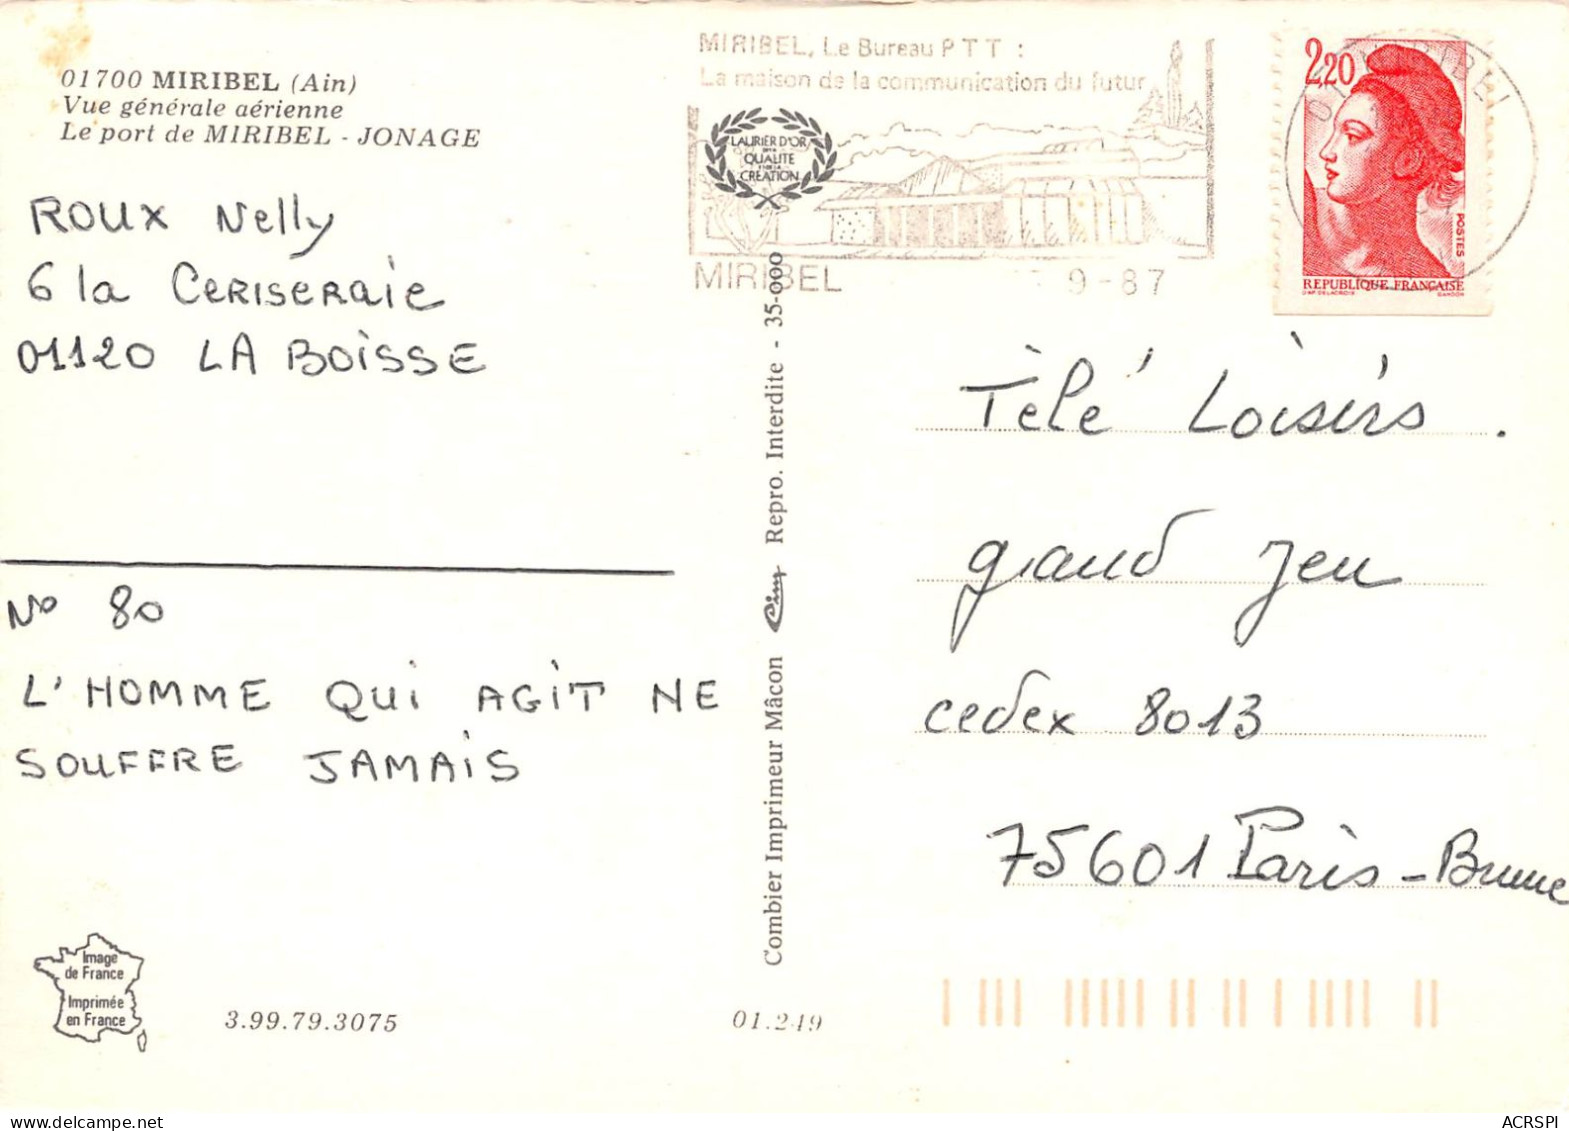 01700 MIRIBEL (Ain)
Vue générale aérienne
Le port de MIRIBEL - JONAGE
ROUX Nelly
6 la CERISERAIE
01120 LA BOISSE
N° 80
L'HOMME QUI AGIT NE
SOUFFRE JAMAIS
Image
de France
Imprimée
en France
3.99.79.3075
01.249
Combier Imprimeur Mâcon Cim Repro. Interdite - 35-000
MIRIBEL, Le Bureau PTT :
La maison de la communication du futur
LAURIER D'OR
QUALITE
CREATION
MIRIBEL
9-87
2,20
POSTES
REPUBLIQUE FRANÇAISE
D'AP. DELACROIX GANDON
MIRIBEL
Tèlé Loisirs.
grand jeu
cedex 8013
75601 Paris-Brune
ACRSPI